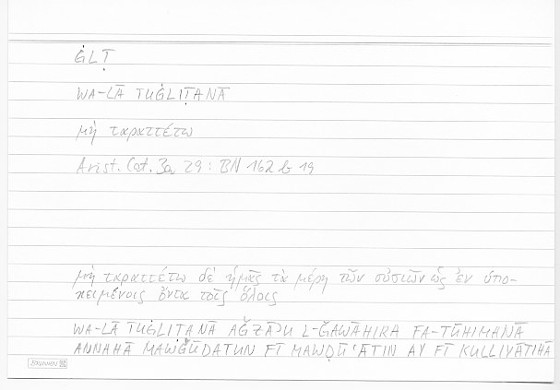 ĠLṬ
WA-LĀ TUĠLIṬANĀ
μὴ ταραττέτω
Arist. Cat. 3a 29 : BN 162 b 19
μὴ ταραττέτω δὲ ἡμᾶς τὰ μέρη τῶν οὐσιῶν ὡς ἐν ὑπο-
κειμένοις ὄντα τοῖς ὅλοις
WA-LĀ TUĠLIṬANĀ AǦZĀʾU L-ǦAWĀHIRA FA-TŪHIMANĀ
ANNAHĀ MAWǦŪDATUN FĪ MAWḌŪʿĀTIN AY FĪ KULLIYĀTIHĀ